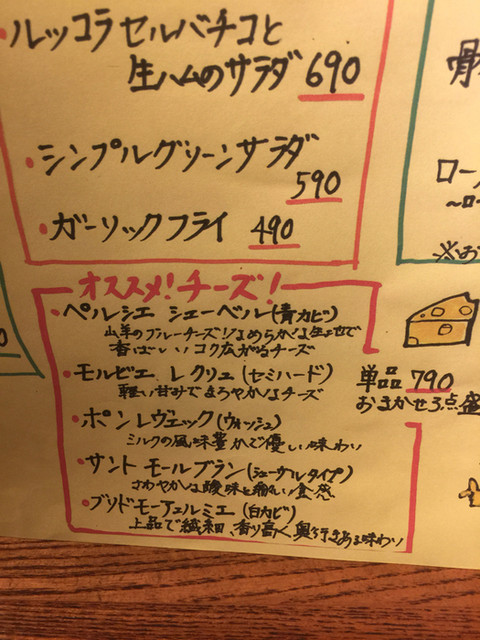 ・ルッコラセルバチコと
生ハムのサラダ 690
・シンプルグリーンサラダ
590
・ガーリックフライ 490
オススメ!チーズ!
・ペルシエ シェーベル(青カビ)
山羊のブルーチーズ なめらかな
香ばしいコク広がるチーズ
・モルビエ、レクリュ(セミハード)
軽い甘みでまろやかなチーズ
単品 790
おまかせ3点盛
・ポンレヴェック(ウォッシュ)
ミルクの風味豊かで優しい味わい
・サントモールブラン(シェーブルタイプ)
さわやかな酸味と 食感
・ブリドモー (白カビ)
上品で繊細、香り高く、奥行きある味わい
骨
ロー
～ロー
※お